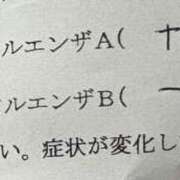 ルエンザA( +
ルエンザB( −
い。症状が変化し